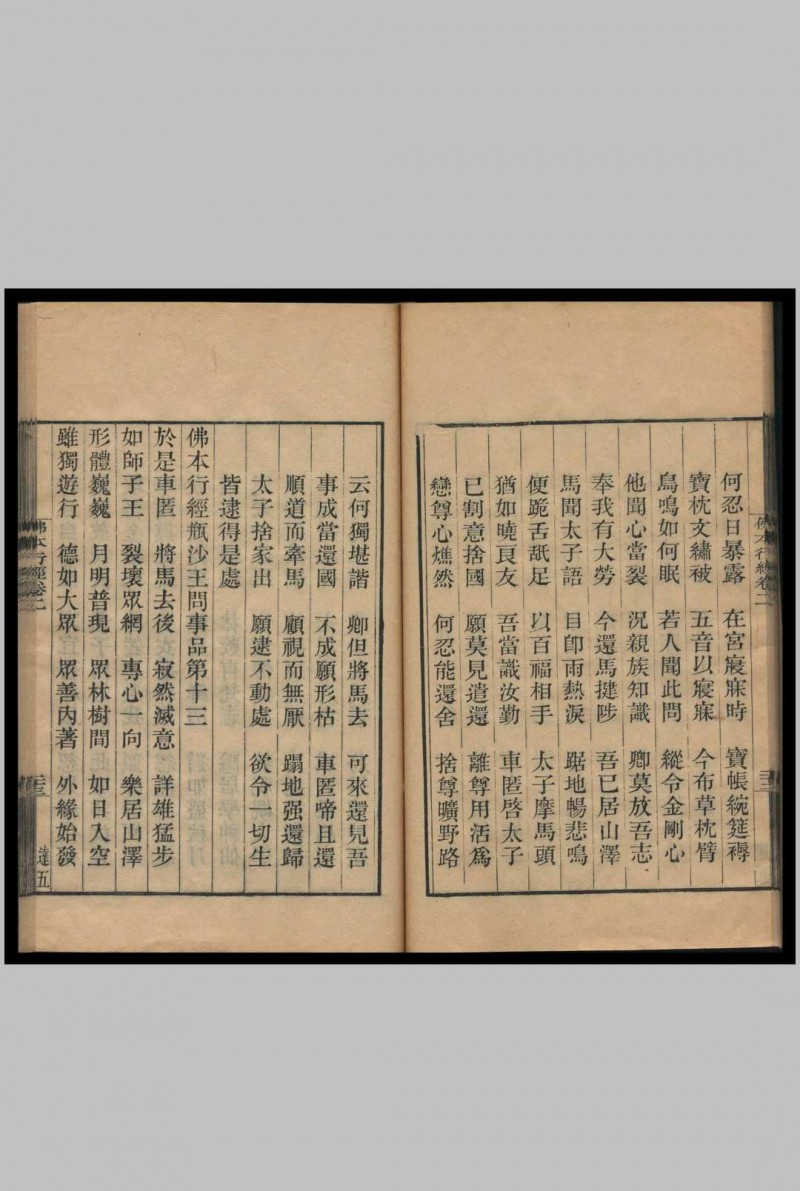 佛本行經卷二
三三
何忍日暴露 在宮寢寐時 寶帳統筵褥
寶枕文繡被 五音以寢寐 今布草枕臂
鳥鳴如何眠 若人聞此問 縱令金剛心
他聞心當裂 況親族知識 卿莫放吾志
奉我有大勞 今還馬揵陟 吾已居山澤
馬聞太子語 目卽雨熱淚 踞地暢悲鳴
便跪舌舐足 以百福相手 太子摩馬頭
猶如曉良友 吾當識汝勤 車匿啓太子
已割意捨國 願莫見遣還 離尊用活爲
戀尊心燋然 何忍能還舍 捨尊曠野路
云何獨堪諧 卿但將馬去 可來還見吾
事成當還國 不成願形枯 車匿啼且還
順道而牽馬 顧視而無厭 蹋地强還歸
太子捨家出 願逮不動處 欲令一切生
皆逮得是處
佛本行經瓶沙王問事品第十三
於是車匿 將馬去後 寂然滅意 詳雄猛步
如師子王 裂壞眾網 專心一向 樂居山澤
形體巍巍 月明普現 眾林樹間 如日入空
雖獨遊行 德如大眾 眾善內著 外緣始發
佛本行經卷二
三三 達五